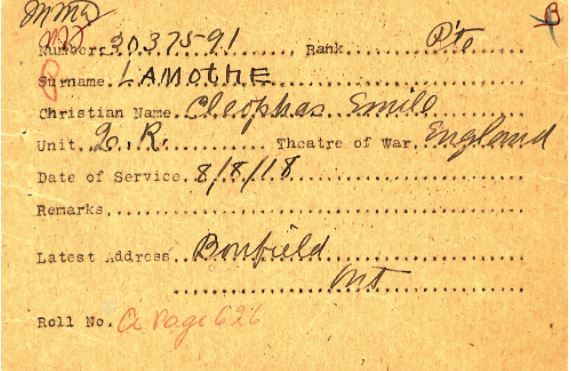 B
Number 3037591 Rank Pte
Surname LAMOTHE
Christian Name Cleophas Emile
Unit Q.R. Theatre of War England
Date of Service 8/8/18
Remarks
Latest Address Bonfield
Ont
Roll No. A Page 626